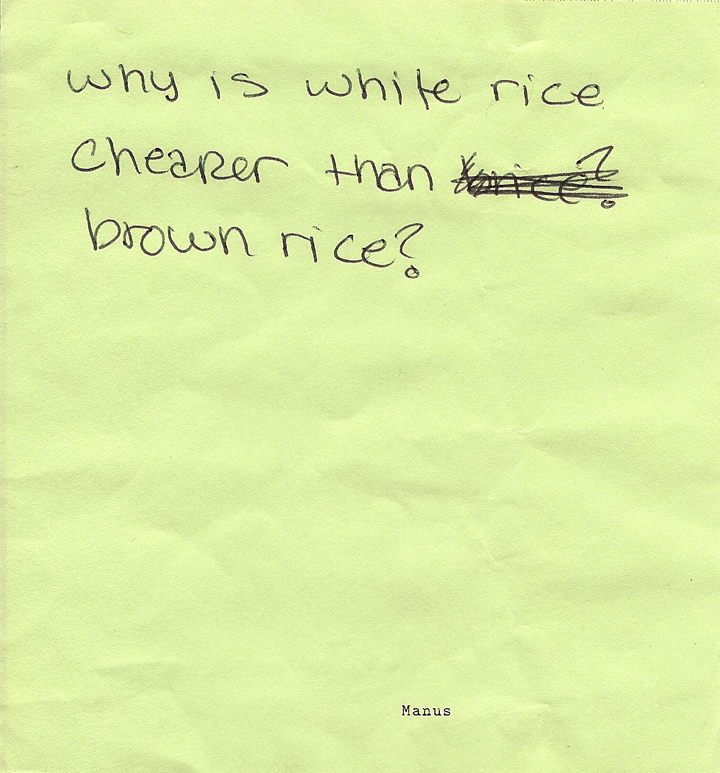 why is white rice
cheaper than
brown rice?
Manus